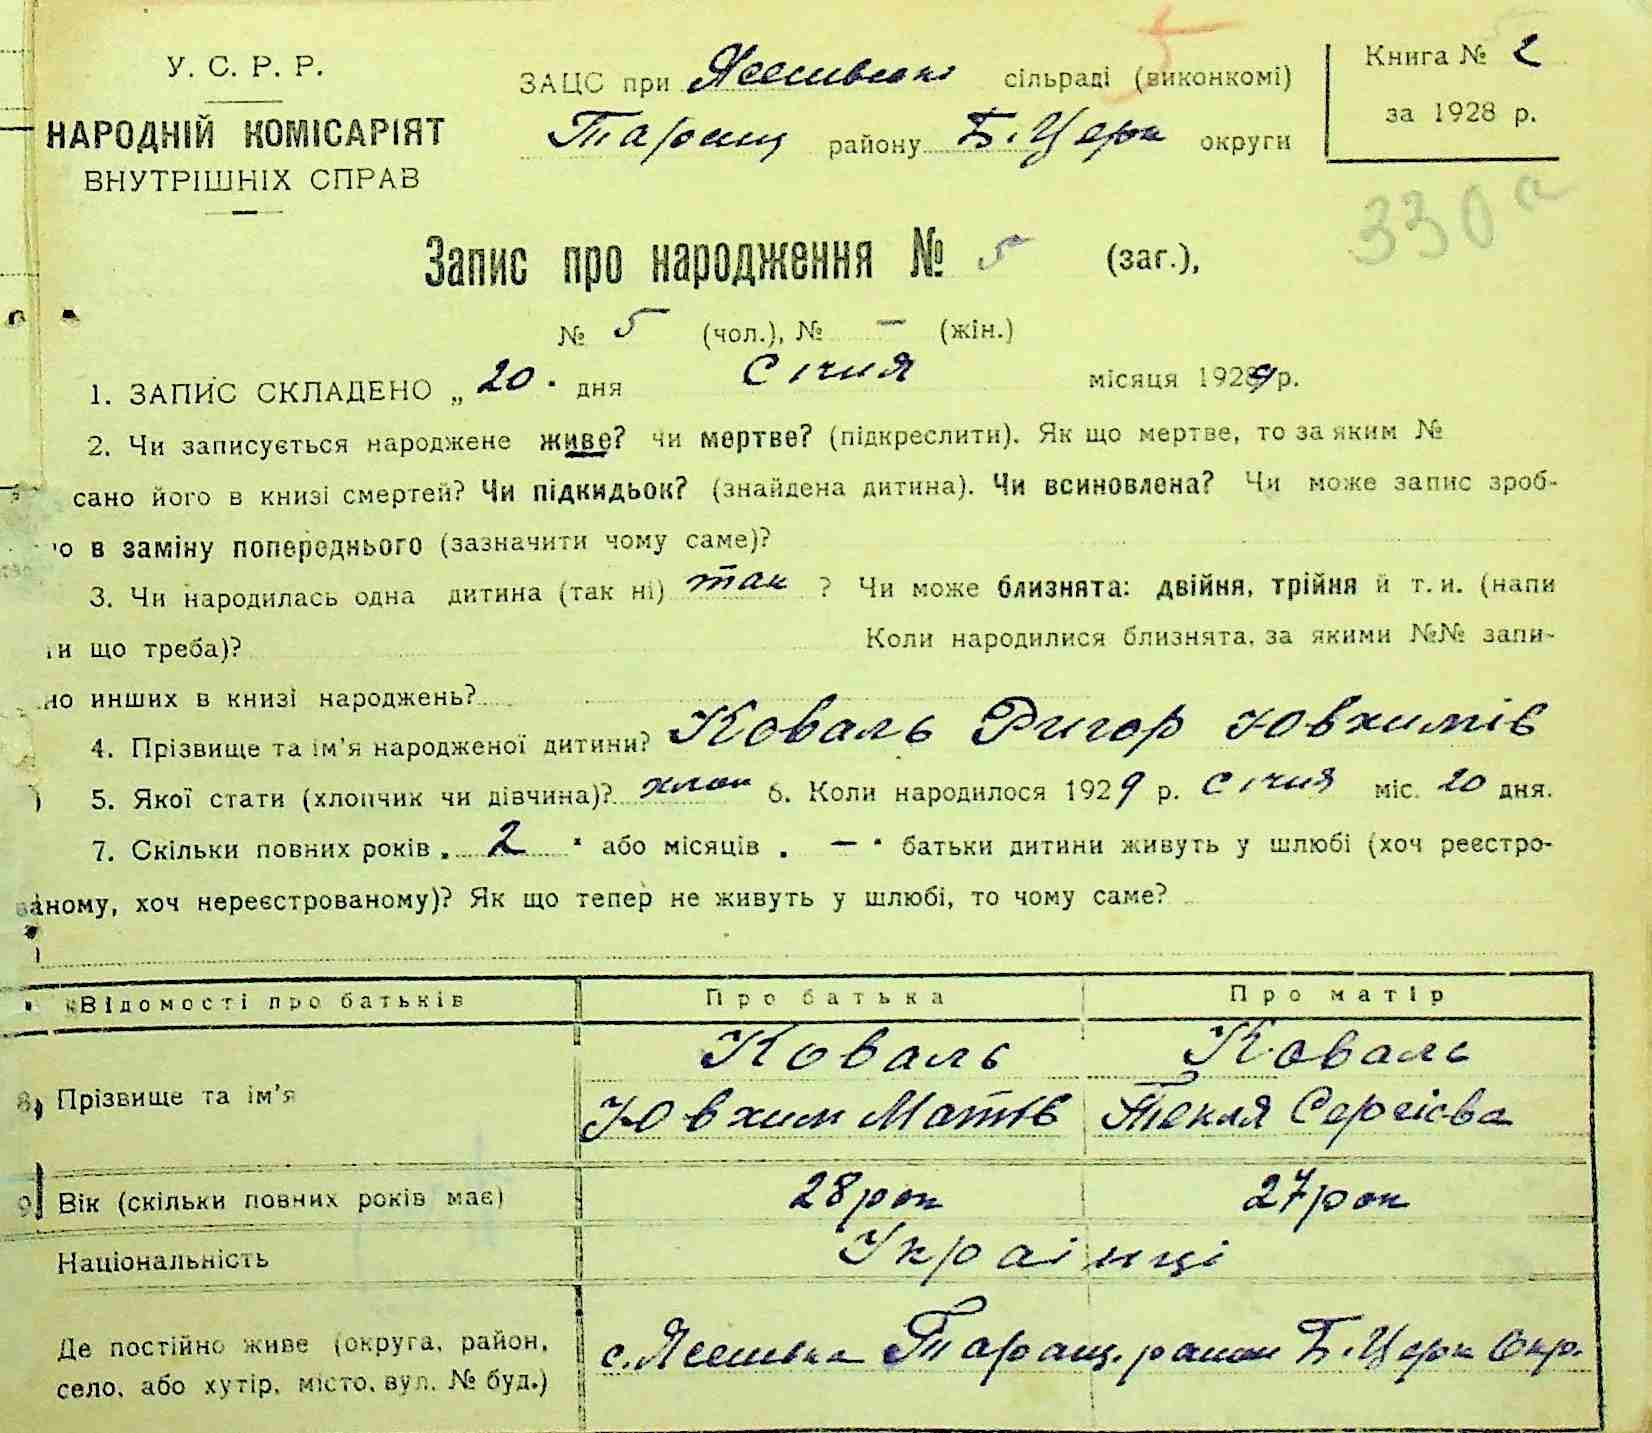 У. С. Р. Р.
НАРОДНІЙ КОМІСАРІЯТ
ВНУТРІШНІХ СПРАВ
ЗАЦС при Ясенівські сільраді (виконкомі)
Таращ району Б. Церк округи
Книга № 2
за 1928 р.
330а
Запис про народження № 5 (заг.),
№ 5 (чол.), № — (жін.)
1. ЗАПИС СКЛАДЕНО „ 20 " дня Січня місяця 1929 р.
2. Чи записується народжене живе? чи мертве? (підкреслити). Як що мертве, то за яким №
сано його в книзі смертей? Чи підкидьок? (знайдена дитина). Чи всиновлена? Чи може запис зроб-
о в заміну попереднього (зазначити чому саме)?
3. Чи народилась одна дитина (так ні) так ? Чи може близнята: двійня, трійня й т. и. (напи
и що треба)? Коли народилися близнята, за якими №№ запи-
но инших в книзі народжень?
4. Прізвище та ім'я народженої дитини? Коваль Ригор Ювхимів
5. Якої стати (хлопчик чи дівчина)? хлоп 6. Коли народилося 1929 р. Січня міс. 20 дня.
7. Скільки повних років „ 2 " або місяців „ — " батьки дитини живуть у шлюбі (хоч реєстро-
ваному, хоч нереєстрованому)? Як що тепер не живуть у шлюбі, то чому саме?
Відомості про батьків Про батька Про матір
8) Прізвище та ім'я Коваль Коваль
Ювхим Матів Текля Сергієва
9) Вік (скільки повних років має) 28 рок 27 рок
Національність Українці
Де постійно живе (округа, район,
село, або хутір, місто, вул. № буд.) с. Ясенівка Таращ. район Б. Церк Окр.